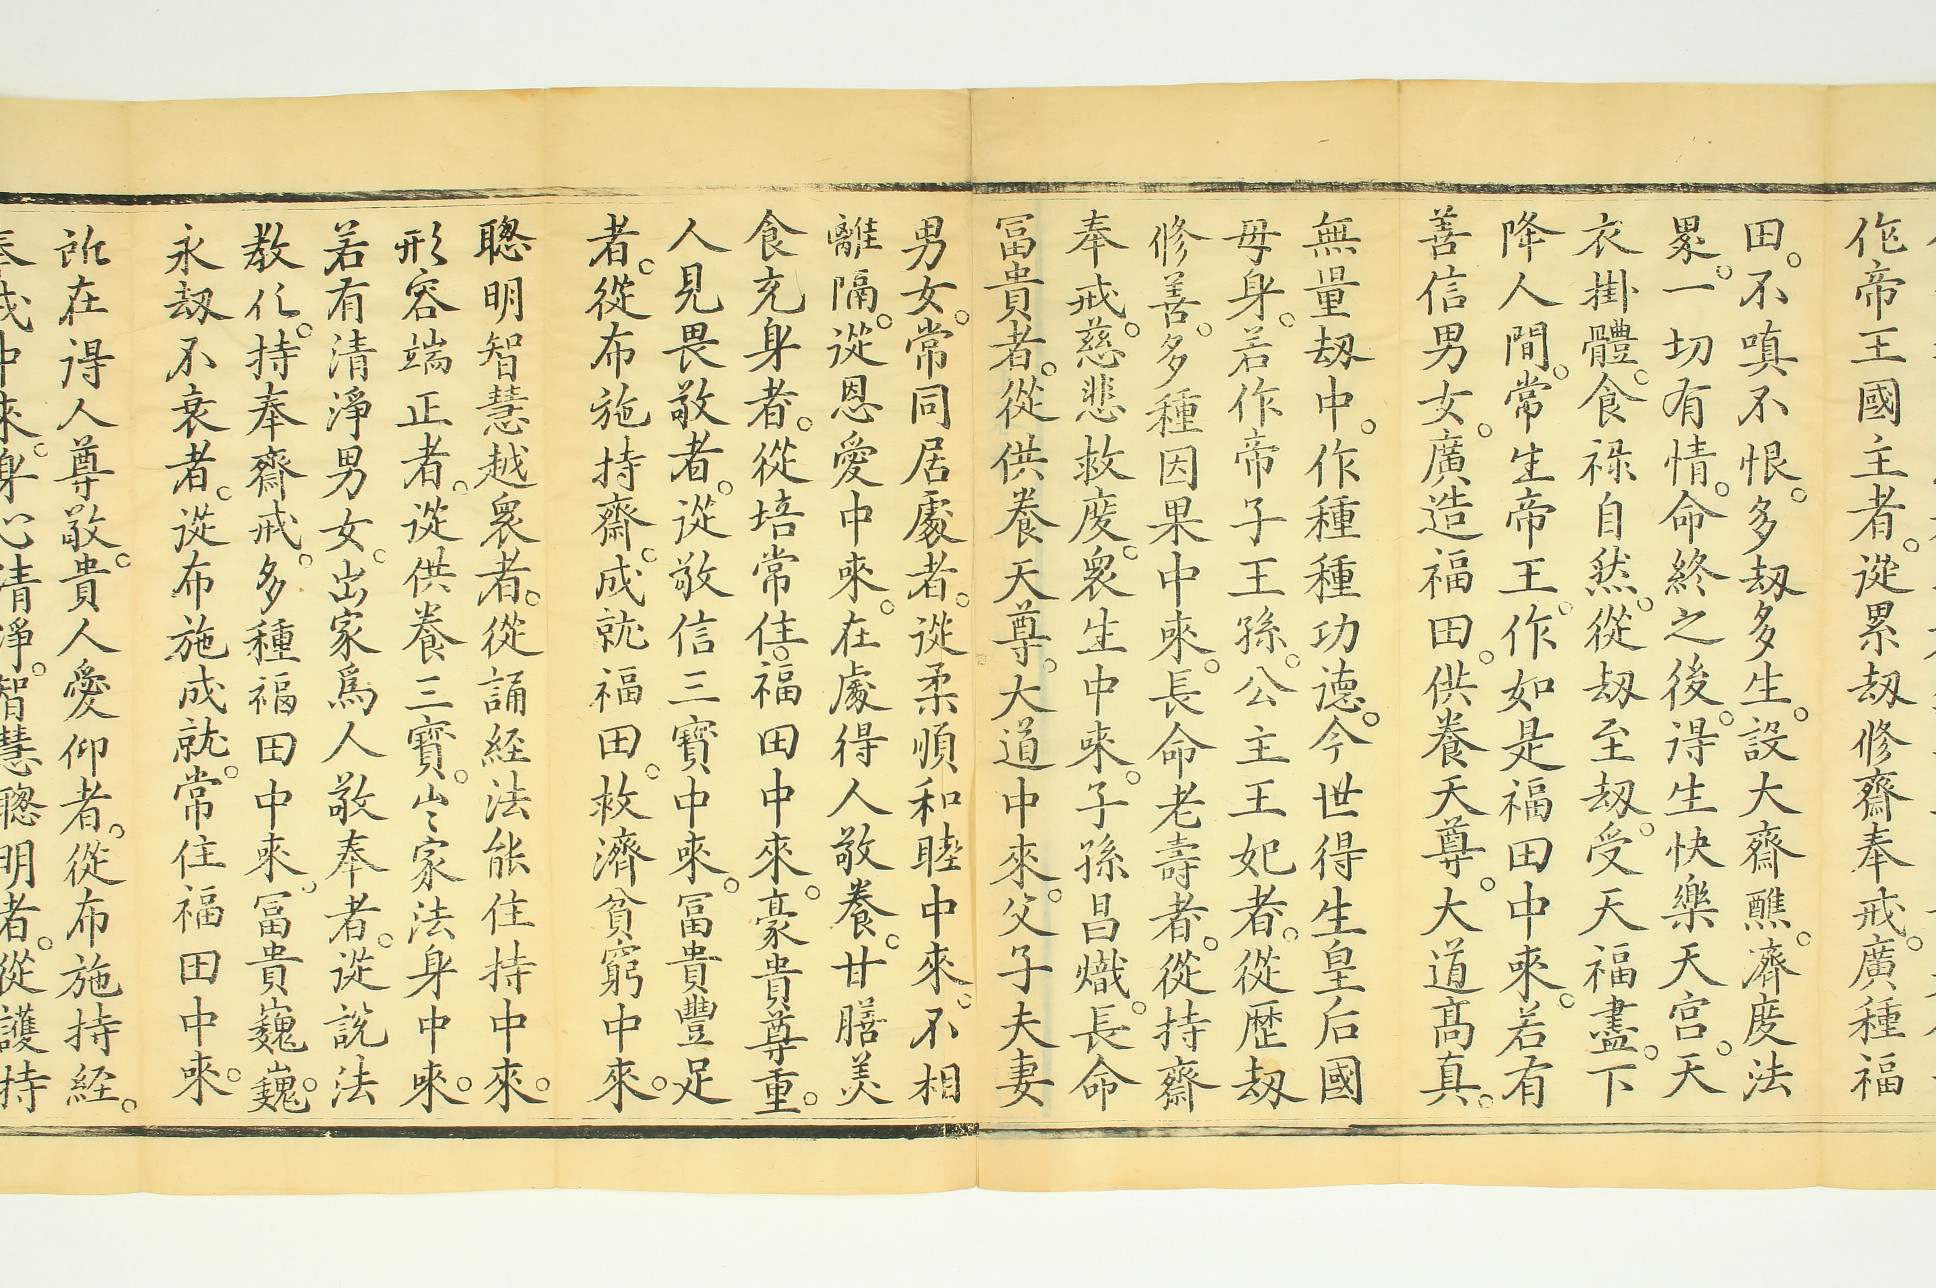 作帝王國主者。從累劫修齋奉戒。廣種福
田。不嗔不恨。多劫多生。設大齋醮。濟度法
界。一切有情。命終之後。得生快樂天宮。天
衣掛體。食祿自然。從劫至劫。受天福盡。下
降人間。常生帝王。作如是福田中來。若有
善信男女。廣造福田。供養天尊。大道高真。
無量劫中。作種種功德。今世得生皇后國
母身。若作帝子王孫。公主王妃者。從歷劫
修善。多種因果中來。長命老壽者。從持齋
奉戒。慈悲救度。眾生中來。子孫昌熾。長命
冨貴者。從供養天尊。大道中來。父子夫妻
男女。常同居處者。從柔順和睦中來。不相
離隔。從恩愛中來。在處得人敬養。甘膳美
食充身者。從培常住。福田中來。豪貴尊重。
人見畏敬者。從敬信三寶中來。冨貴豐足
者。從布施持齋。成就福田。救濟貧窮中來。
聰明智慧越眾者。從誦經法能住持中來。
形容端正者。從供養三寶。出家法身中來。
若有清淨男女。出家為人敬奉者。從說法
教化。持奉齋戒。多種福田中來。冨貴巍巍。
永劫不衰者。從布施成就。常住福田中來。
所在得人尊敬。貴人愛仰者。從布施持經。
奉戒中來。身心清淨。智慧聰明者。從護持